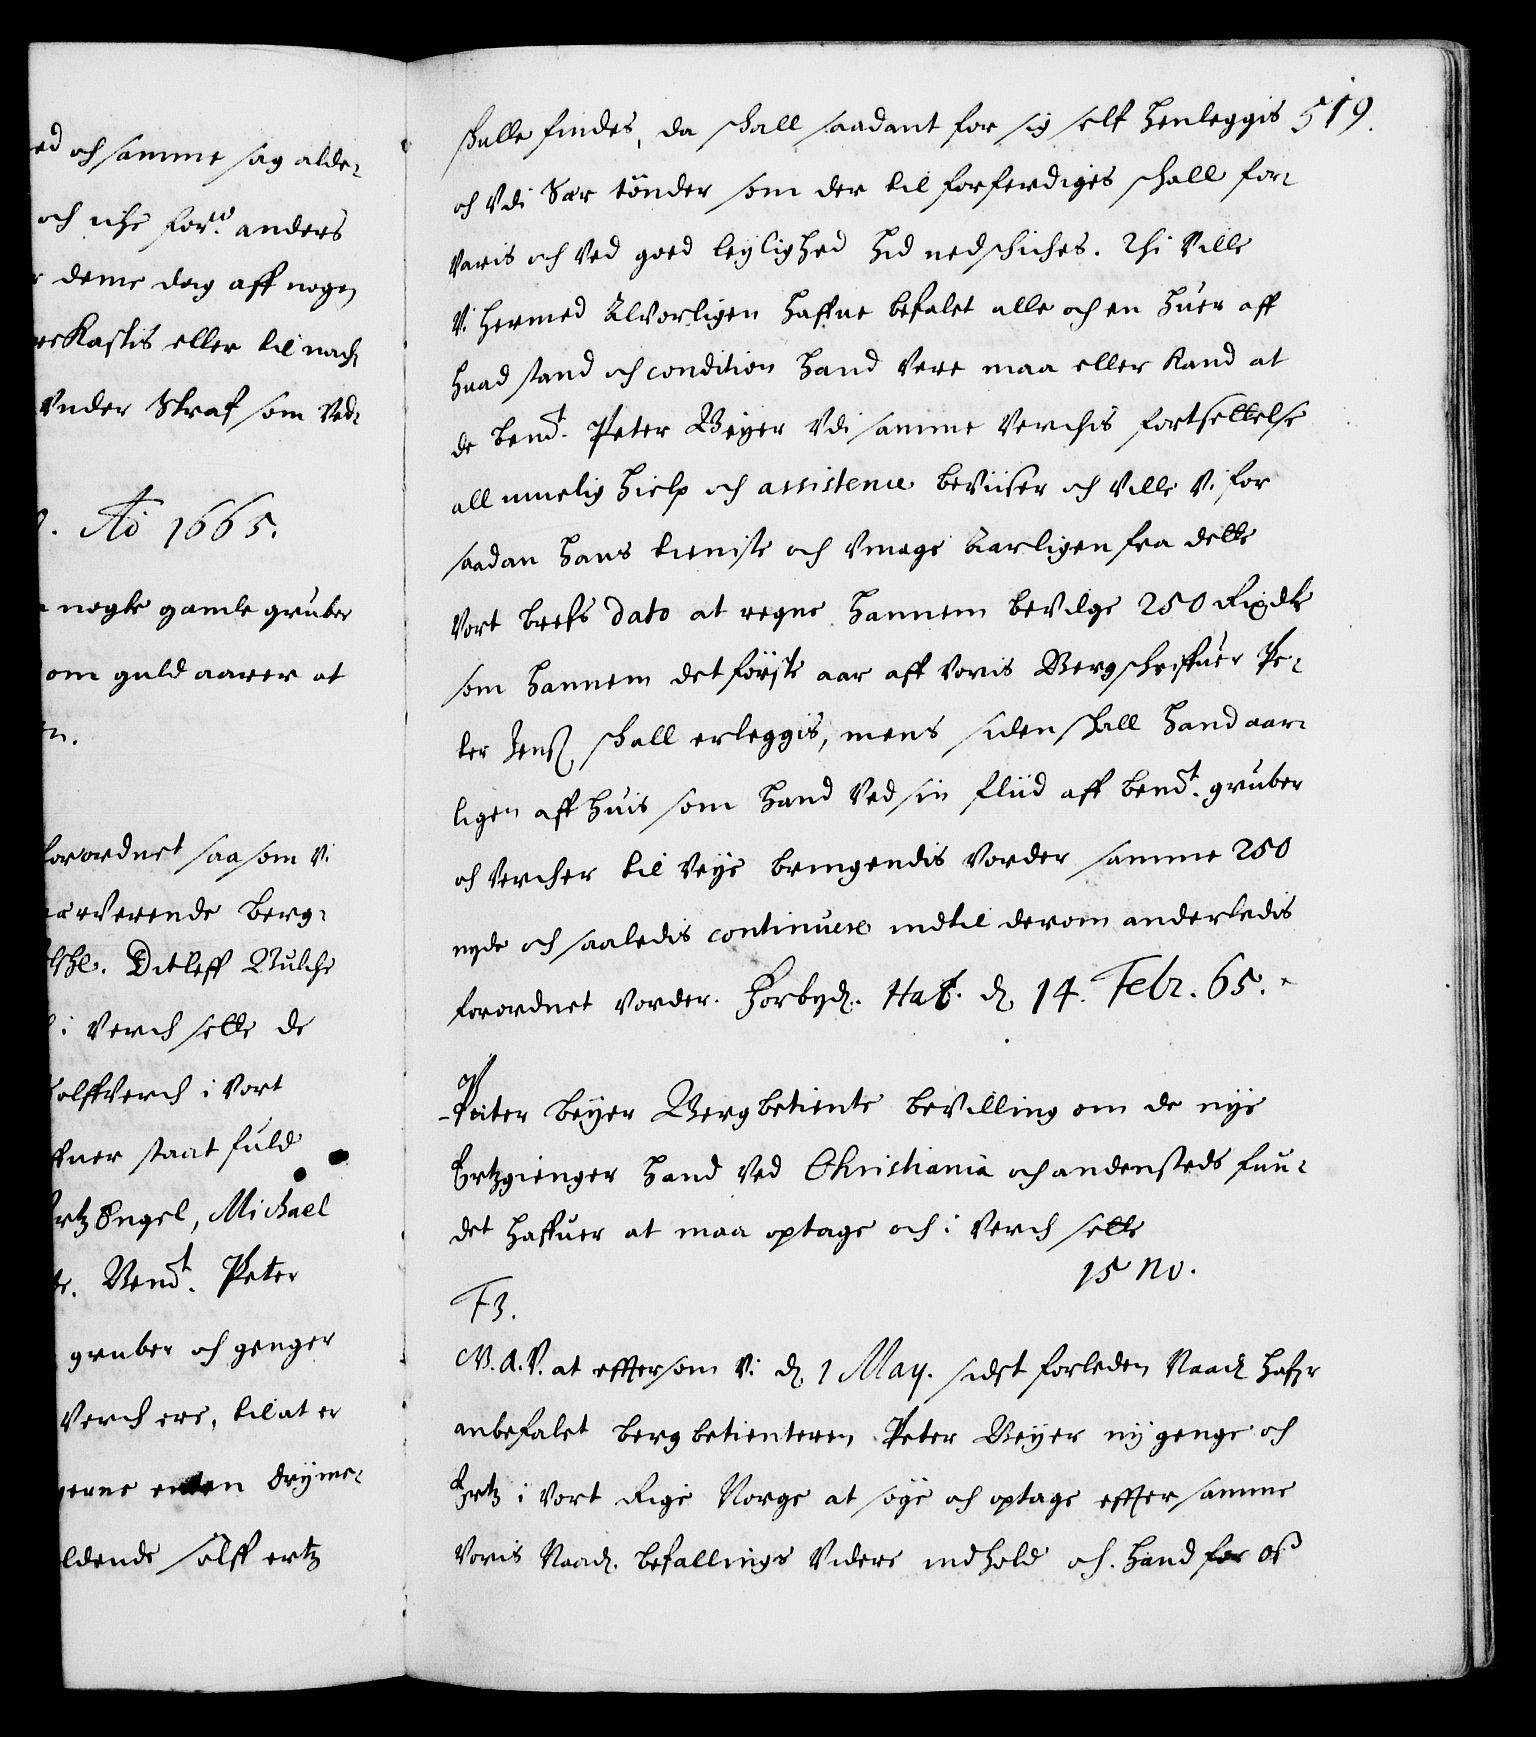 ed och samme sag alde-
och icke for.ne anders
denne dag aff nogen
Kastis eller til nach
Vnder Straf som ved-
Ao 1665.
nogle gamle gruber
om guld aarer at
forordnet saa som Vi
nerverende berg-
Ditleff Bulche
i Verch sette de
sölffverch i Vort
staat fuld
Engel, Michael
Bemt. Peter
gruber och genger
Verch ere, til at er
gerne enten
ldende sölff ertz
519.
schulle findes, da schall saadant for sig self henleggis
och Vdi Sær tönder som der til forferdiges schall for-
varis och ved goed leylighed hid nedschiches. Thi Ville
Vi hermed Alvorligen haffue befalet alle och en huer aff
huad stand och condition hand Vere maa eller Kand at
de bemt. Peter Beyer Vdi samme Verchis fortsettelse
all muelig hielp och assistence beviiser och Ville Vi for
saadan hans tieniste och Vmage Aarligen fra dette
Vort brefs dato at regne hannem bevilge 250 Rixdlr
som hannem det förste aar aff Voris Bergschriffuer Pe-
ter Jenß schall erleggis, mens siden schall hand aar-
ligen aff huis som hand Ved sin fliid aff bemt. gruber
och Vercher til Veye bringendis Vorder samme 250
nyde och saaledis continuere indtil derom anderledis
forordnet Vorder. Forbyd. Haf. d. 14. Febr. 65.
Peiter Beyer Bergbetiente beVilling om de nye
Ertzgienger hand Ved Christiania och andensteds fun-
det haffuer at maa optage och i Verch sette
15 no.
F3.
G.A.V. at eftersom Vi d. 1 May. sidst forleden Naad. hafr
anbefalet bergbetienteren Peter Beyer ny genge och
Ertz i Vort Rige Norge at söge och optage effter samme
Voris Naad. befallings Videre indhold och hand for os